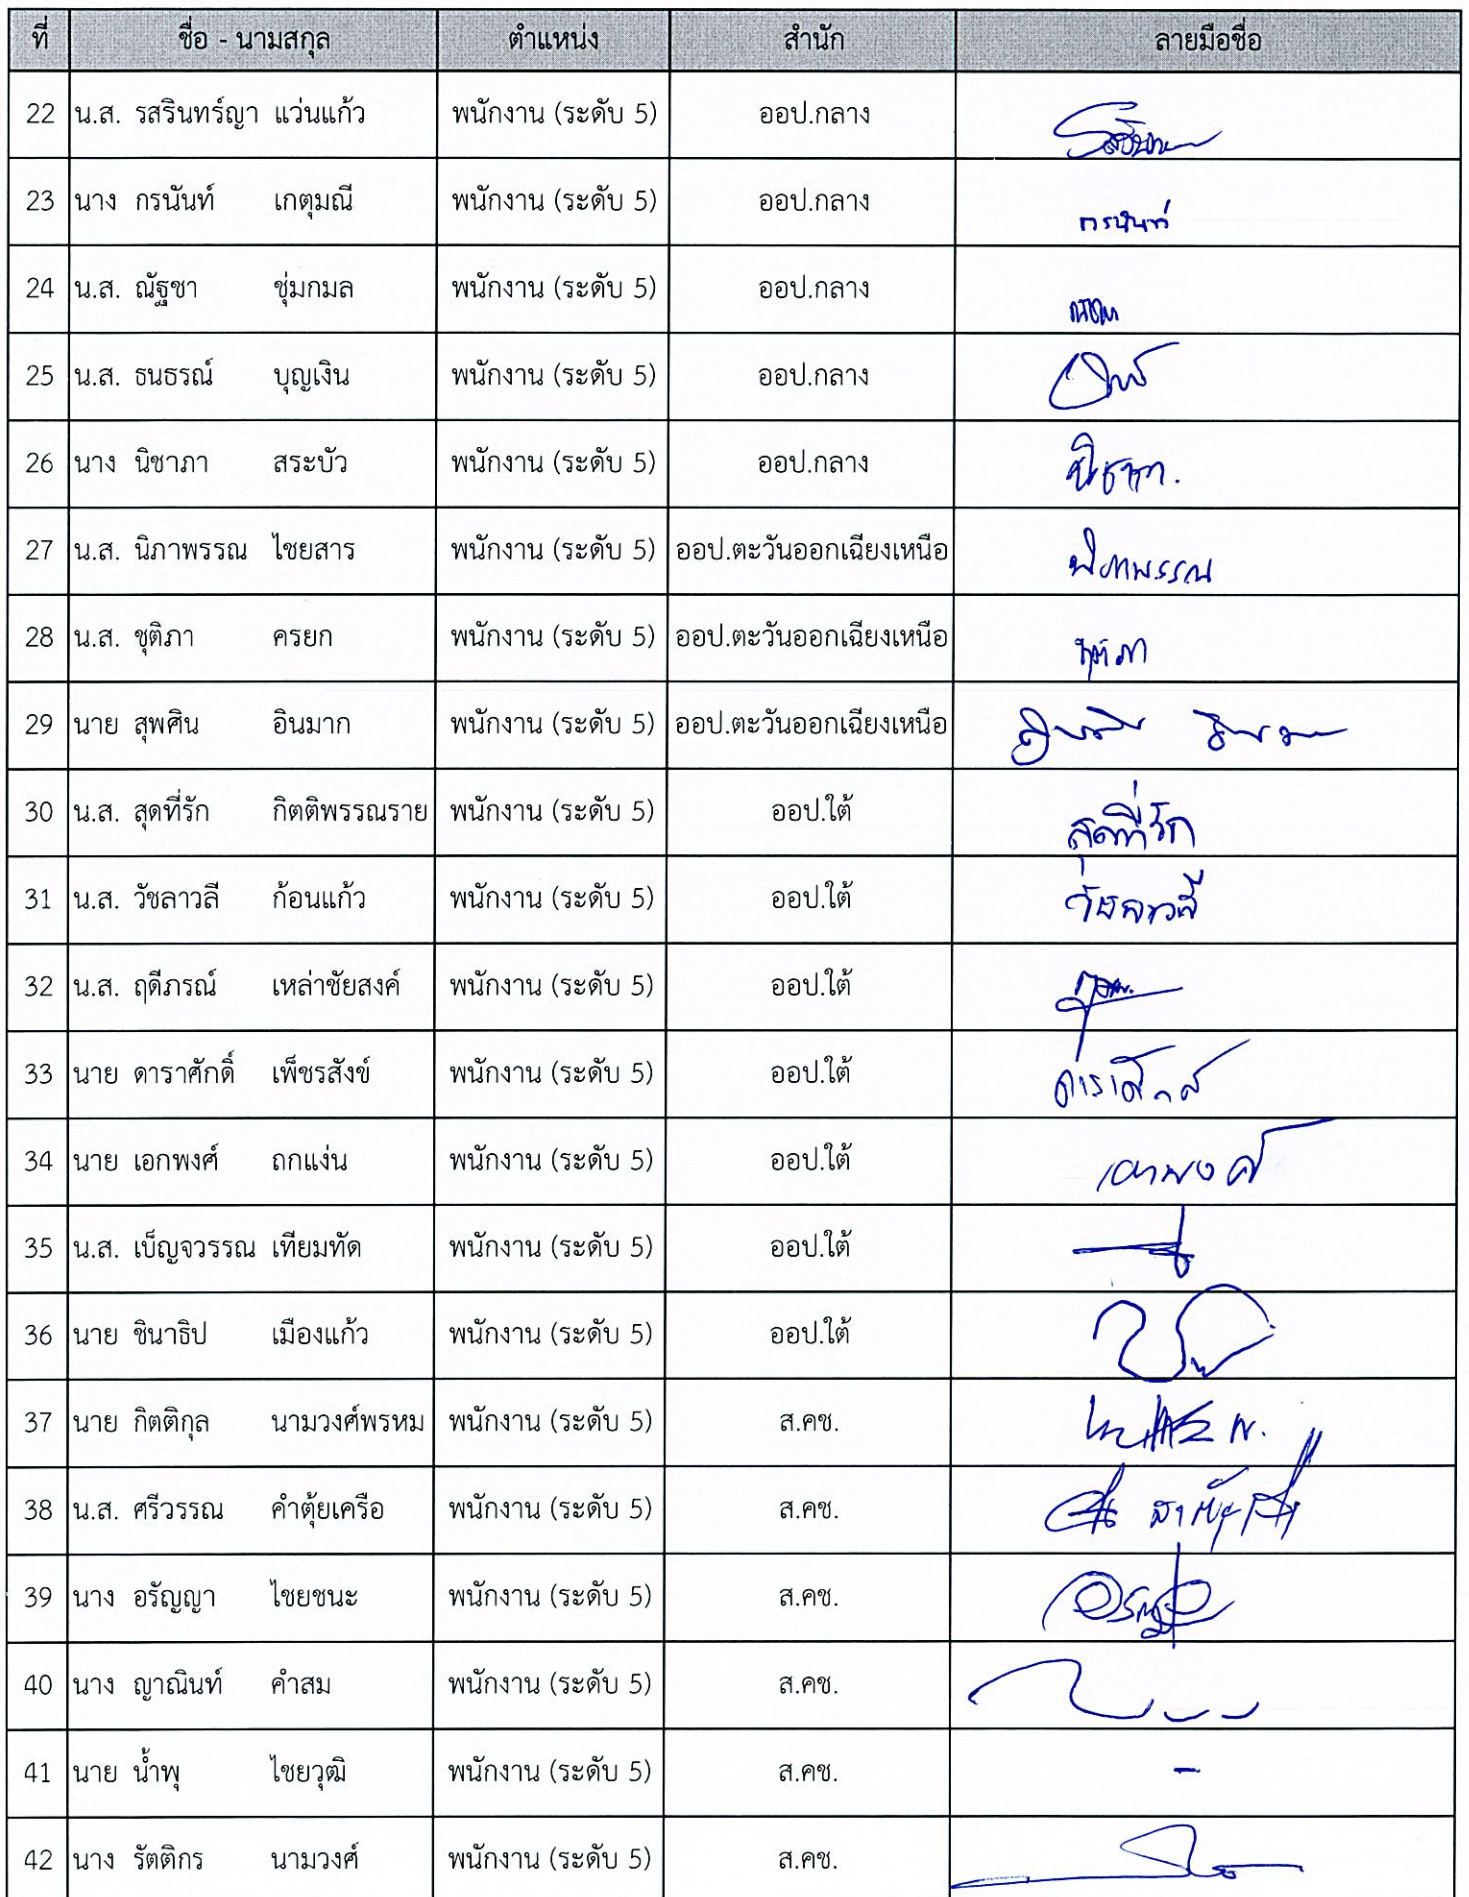 ที่ ชื่อ - นามสกุล ตำแหน่ง สำนัก ลายมือชื่อ
22 น.ส. รสรินทร์ญา แว่นแก้ว พนักงาน (ระดับ 5) ออป.กลาง
23 นาง กรนันท์ เกตุมณี พนักงาน (ระดับ 5) ออป.กลาง กรนันท์
24 น.ส. ณัฐชา ชุ่มกมล พนักงาน (ระดับ 5) ออป.กลาง
25 น.ส. ธนธรณ์ บุญเงิน พนักงาน (ระดับ 5) ออป.กลาง
26 นาง นิชาภา สระบัว พนักงาน (ระดับ 5) ออป.กลาง นิชาภา.
27 น.ส. นิภาพรรณ ไชยสาร พนักงาน (ระดับ 5) ออป.ตะวันออกเฉียงเหนือ นิภาพรรณ
28 น.ส. ชุติภา ครยก พนักงาน (ระดับ 5) ออป.ตะวันออกเฉียงเหนือ ชุติภา
29 นาย สุพศิน อินมาก พนักงาน (ระดับ 5) ออป.ตะวันออกเฉียงเหนือ
30 น.ส. สุดที่รัก กิตติพรรณราย พนักงาน (ระดับ 5) ออป.ใต้ สุดที่รัก
31 น.ส. วัชลาวลี ก้อนแก้ว พนักงาน (ระดับ 5) ออป.ใต้ วัชลาวลี
32 น.ส. ฤดีภรณ์ เหล่าชัยสงค์ พนักงาน (ระดับ 5) ออป.ใต้
33 นาย ดาราศักดิ์ เพ็ชรสังข์ พนักงาน (ระดับ 5) ออป.ใต้ ดาราศักดิ์
34 นาย เอกพงศ์ ถกแง่น พนักงาน (ระดับ 5) ออป.ใต้ เอกพงศ์
35 น.ส. เบ็ญจวรรณ เทียมทัด พนักงาน (ระดับ 5) ออป.ใต้
36 นาย ชินาธิป เมืองแก้ว พนักงาน (ระดับ 5) ออป.ใต้
37 นาย กิตติกุล นามวงศ์พรหม พนักงาน (ระดับ 5) ส.คช.
38 น.ส. ศรีวรรณ คำตุ้ยเครือ พนักงาน (ระดับ 5) ส.คช.
39 นาง อรัญญา ไชยชนะ พนักงาน (ระดับ 5) ส.คช.
40 นาง ญาณินท์ คำสม พนักงาน (ระดับ 5) ส.คช.
41 นาย น้ำพุ ไชยวุฒิ พนักงาน (ระดับ 5) ส.คช. -
42 นาง รัตติกร นามวงศ์ พนักงาน (ระดับ 5) ส.คช.